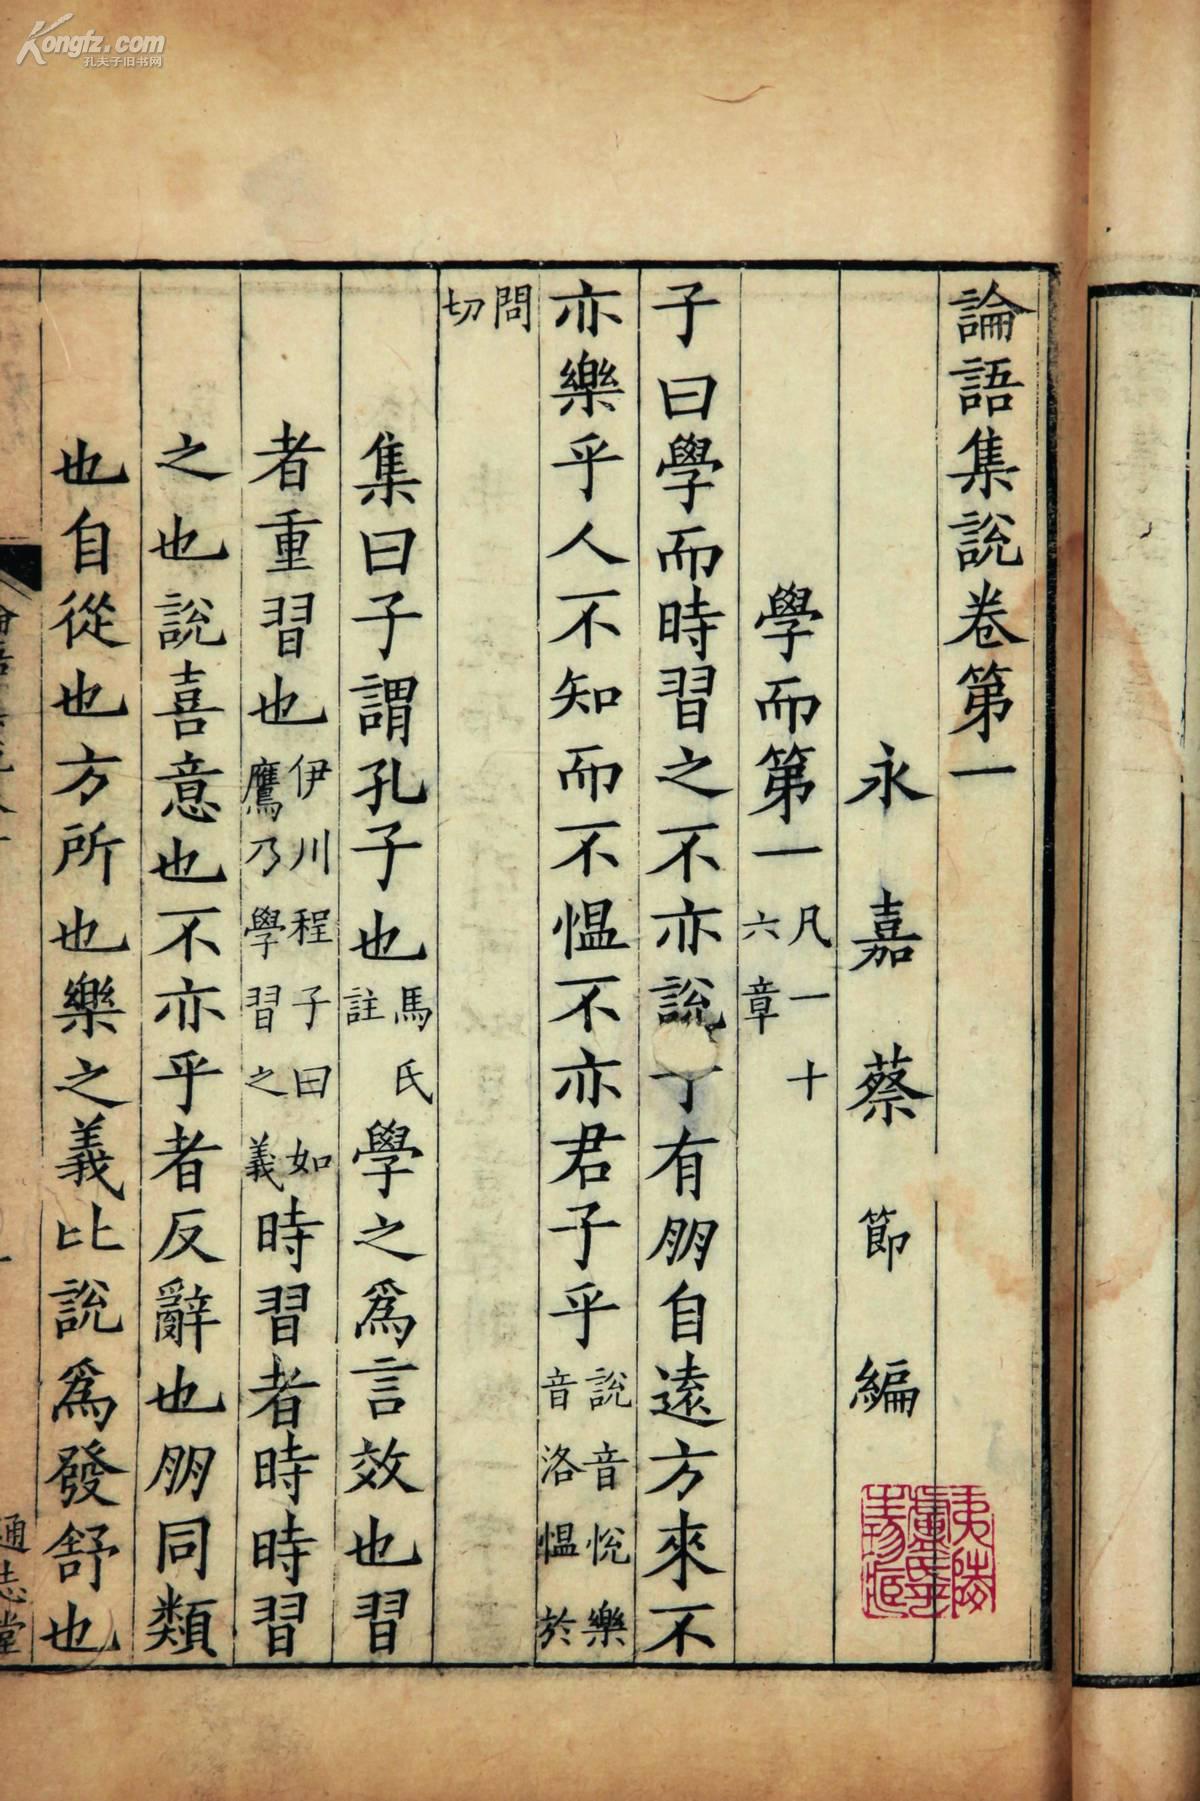 論語集說卷第一
永嘉蔡節編
學而第一凡一十六章
子曰學而時習之不亦說乎有朋自遠方來不
亦樂乎人不知而不慍不亦君子乎說音悅樂音洛慍於
問切
集曰子謂孔子也馬氏註學之為言效也習
者重習也伊川程子曰如鷹乃學習之義時習者時時習
之也說喜意也不亦乎者反辭也朋同類
也自從也方所也樂之義比說為發舒也
通志堂
Kongfz.com
孔夫子旧书网